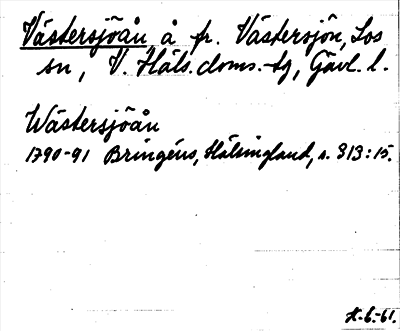 Västersjöån å fr. Västersjön, Los
sn, V. Häls. doms.-tg, Gävl. l.
Wästersjöån
1790-91 Bringéus, Hälsingland, s. 313:15.
H.-6.-61.